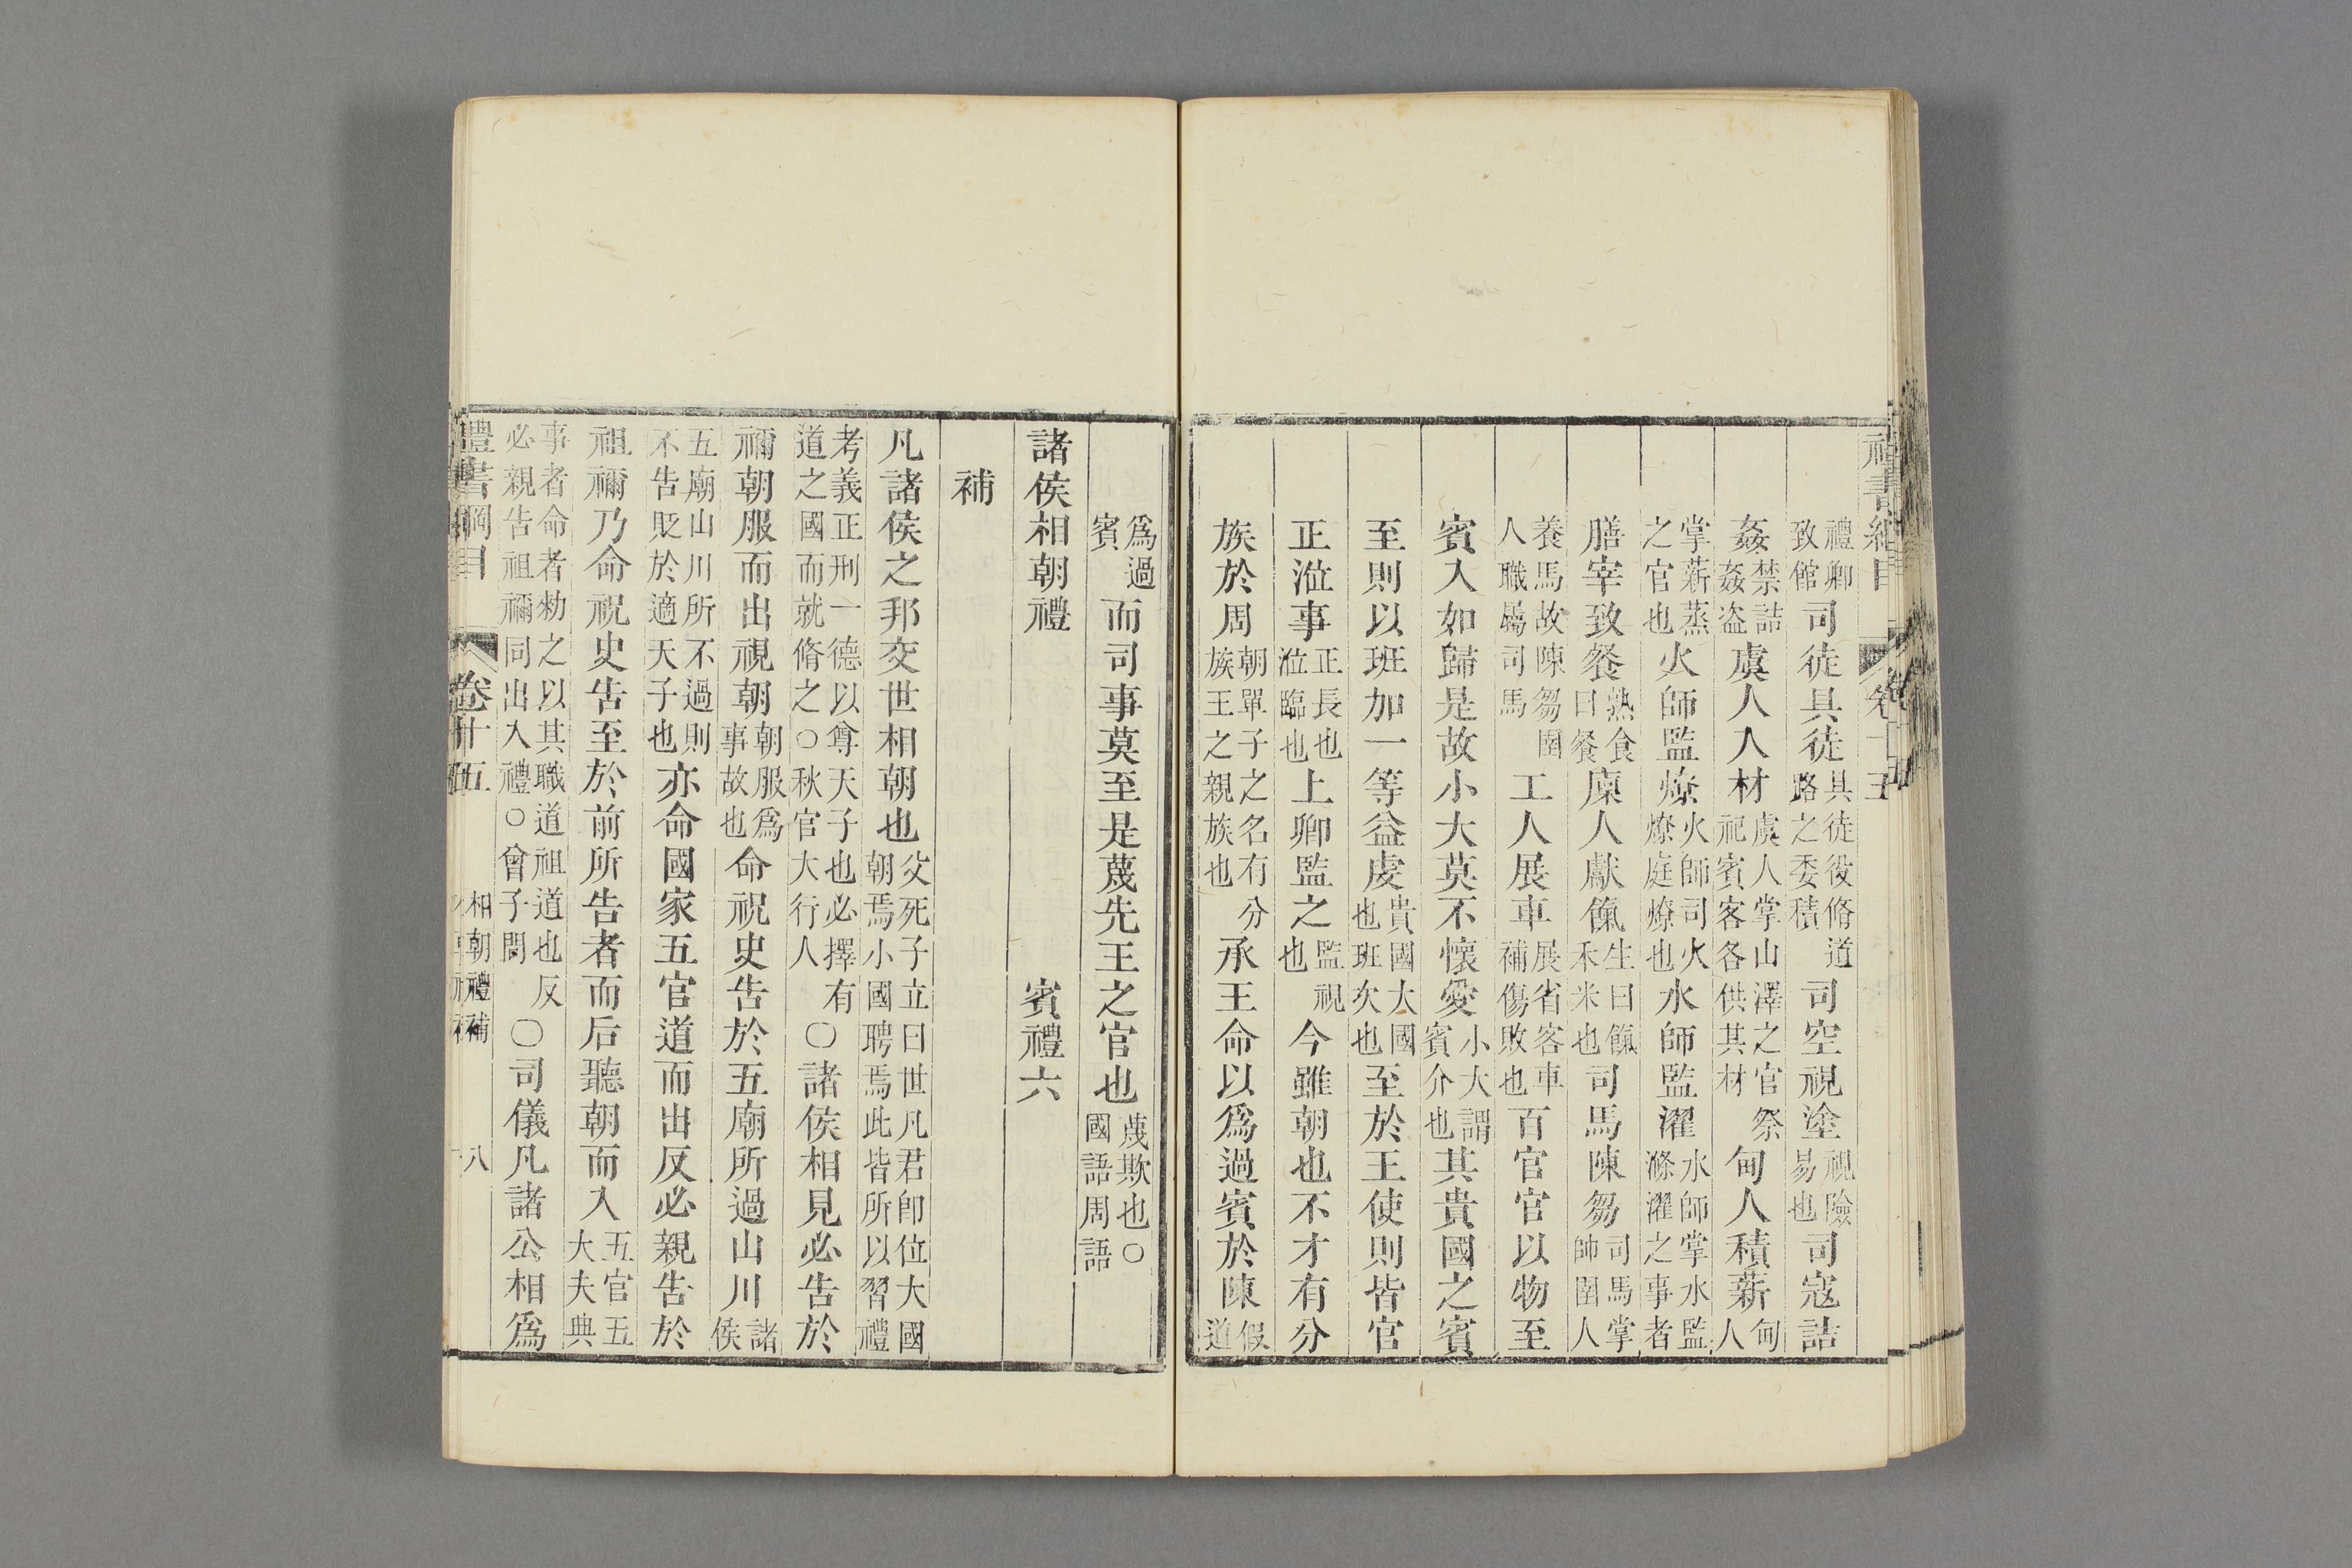 禮書綱目　卷十五
禮卿致館司徒具徒具徒役脩道路之委積司空視塗視險易也司寇詰
姦禁詰姦盗虞人入材虞人掌山澤之官祭祀賓客各供其材甸人積薪甸人
掌薪蒸之官也火師監燎火師司火燎庭燎也水師監濯水師掌水監滌濯之事者
膳宰致餐熟食曰餐廩人獻餼生曰餼禾米也司馬陳芻司馬掌帥圉人
養馬故陳芻圉人職屬司馬工人展車展省客車補傷敗也百官官以物至
賓入如歸是故小大莫不懷愛小大謂賓介也其貴國之賓
至則以班加一等益虔貴國大國也班次也至於王使則皆官
正涖事正長也涖臨也上卿監之監視也今雖朝也不才有分
族於周朝單子之名有分族王之親族也承王命以爲過賓於陳假道
爲過賓而司事莫至是蔑先王之官也蔑欺也○國語周語
諸侯相朝禮　賓禮六
補
凡諸侯之邦交世相朝也父死子立曰世凡君卽位大國朝焉小國聘焉此皆所以習禮
考義正刑一德以尊天子也必擇有道之國而就脩之○秋官大行人○諸侯相見必告於
禰朝服而出視朝朝服爲事故也命祝史告於五廟所過山川諸侯
五廟山川所不過則不告貶於適天子也亦命國家五官道而出反必親告於
祖禰乃命祝史告至於前所告者而后聽朝而入五官五大夫典
事者命者勑之以其職道祖道也反必親告祖禰同出入禮○曾子問○司儀凡諸公相爲
禮書綱目　卷十五　相朝禮補　八